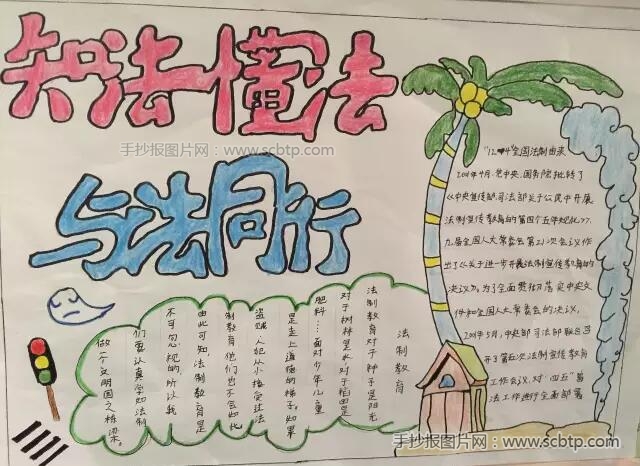 知法懂法
手抄报图片网：www.scbtp.com
与法同行
"12·4"全国法制由来
2001年4月，党中央、国务院批转了
《中央宣传部、司法部关于公民中开展
法制宣传教育的第四个五年规划》，
九届全国人大常委会第21次会议作
出了《关于进一步开展法制宣传教育的
决议》。为了全面贯彻落实中央文
件和全国人大常委会的决议，
2001年5月，中央部司法部联合召
开了第五次法制宣传教育
工作会议，对"四五"普
法工作进行全面部署
法制教育
法制教育对于种子是阳光
对于树林是水对于稻田是
肥料…面对少年儿童
是走上道德的梯子。如果
盗贼人犯从小接受过法
制教育他们也不会如此
由此可知法制教育是
不可忽视的所以我
们要认真学知法制
做一个文明国之栋梁。
手抄报图片网：www.scbtp.com